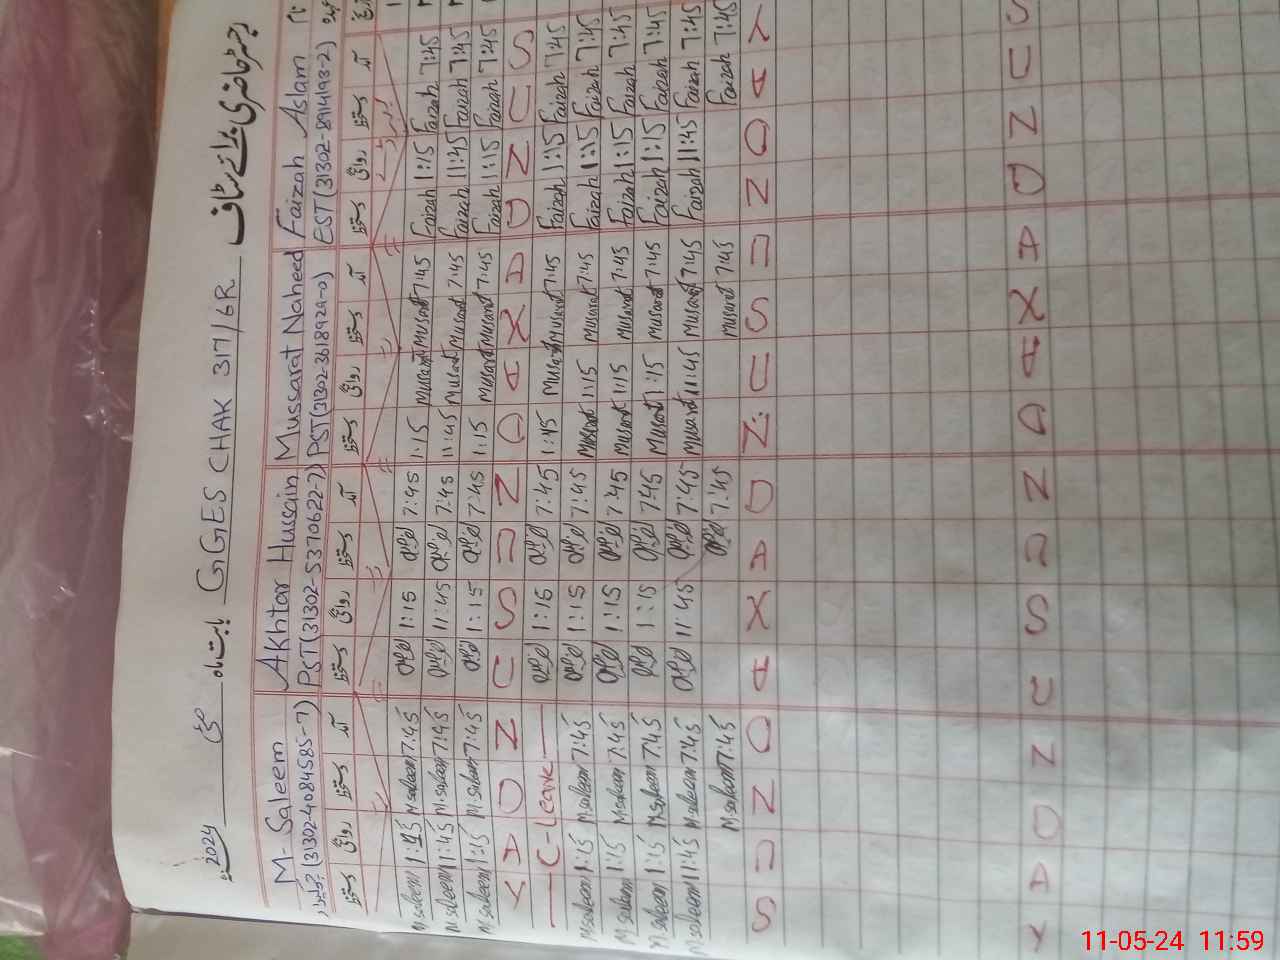 2024 مئی بابت ماہ GGES CHAK 317/6R رجسٹر حاضری برائے سٹاف
M-Saleem Akhtar Hussain Mussarat Naheed Faizah Aslam
(31302-4084585-7) PST(31302-5370622-7) PST(31302-3618929-0) EST(31302-8914193-2)
دستخط روانگی دستخط آمد دستخط روانگی دستخط آمد دستخط روانگی دستخط آمد دستخط روانگی دستخط آمد
M.saleem 1:15 M.saleem 7:45 1:15 7:45 1:15 Musarat Musarat 7:45 Faizah 1:15 Faizah 7:45
M.saleem 11:45 M.saleem 7:45 11:45 7:45 11:45 Musarat Musarat 7:45 Faizah 11:45 Faizah 7:45
M.saleem 1:15 M.saleem 7:45 1:15 7:45 1:15 Musarat Musarat 7:45 Faizah 1:15 Faizah 7:45
SUNDAY SUNDAY
C-Leave 1:15 7:45 1:45 Musarat Musarat 7:45 Faizah 1:15 Faizah 7:45
M.saleem 1:15 M.saleem 7:45 1:15 7:45 Musarat 1:15 Musarat 7:45 Faizah 1:15 Faizah 7:45
M.saleem 1:15 M.saleem 7:45 1:15 7:45 Musarat 1:15 Musarat 7:45 Faizah 1:15 Faizah 7:45
M.saleem 1:15 M.saleem 7:45 1:15 7:45 Musarat 1:15 Musarat 7:45 Faizah 1:15 Faizah 7:45
M.saleem 11:45 M.saleem 7:45 11:45 7:45 Musarat 11:45 Musarat 7:45 Faizah 11:45 Faizah 7:45
M.saleem 7:45 7:45 Musarat 7:45 Faizah 7:45
SUNDAY SUNDAY
SUNDAY SUNDAY
11-05-24 11:59